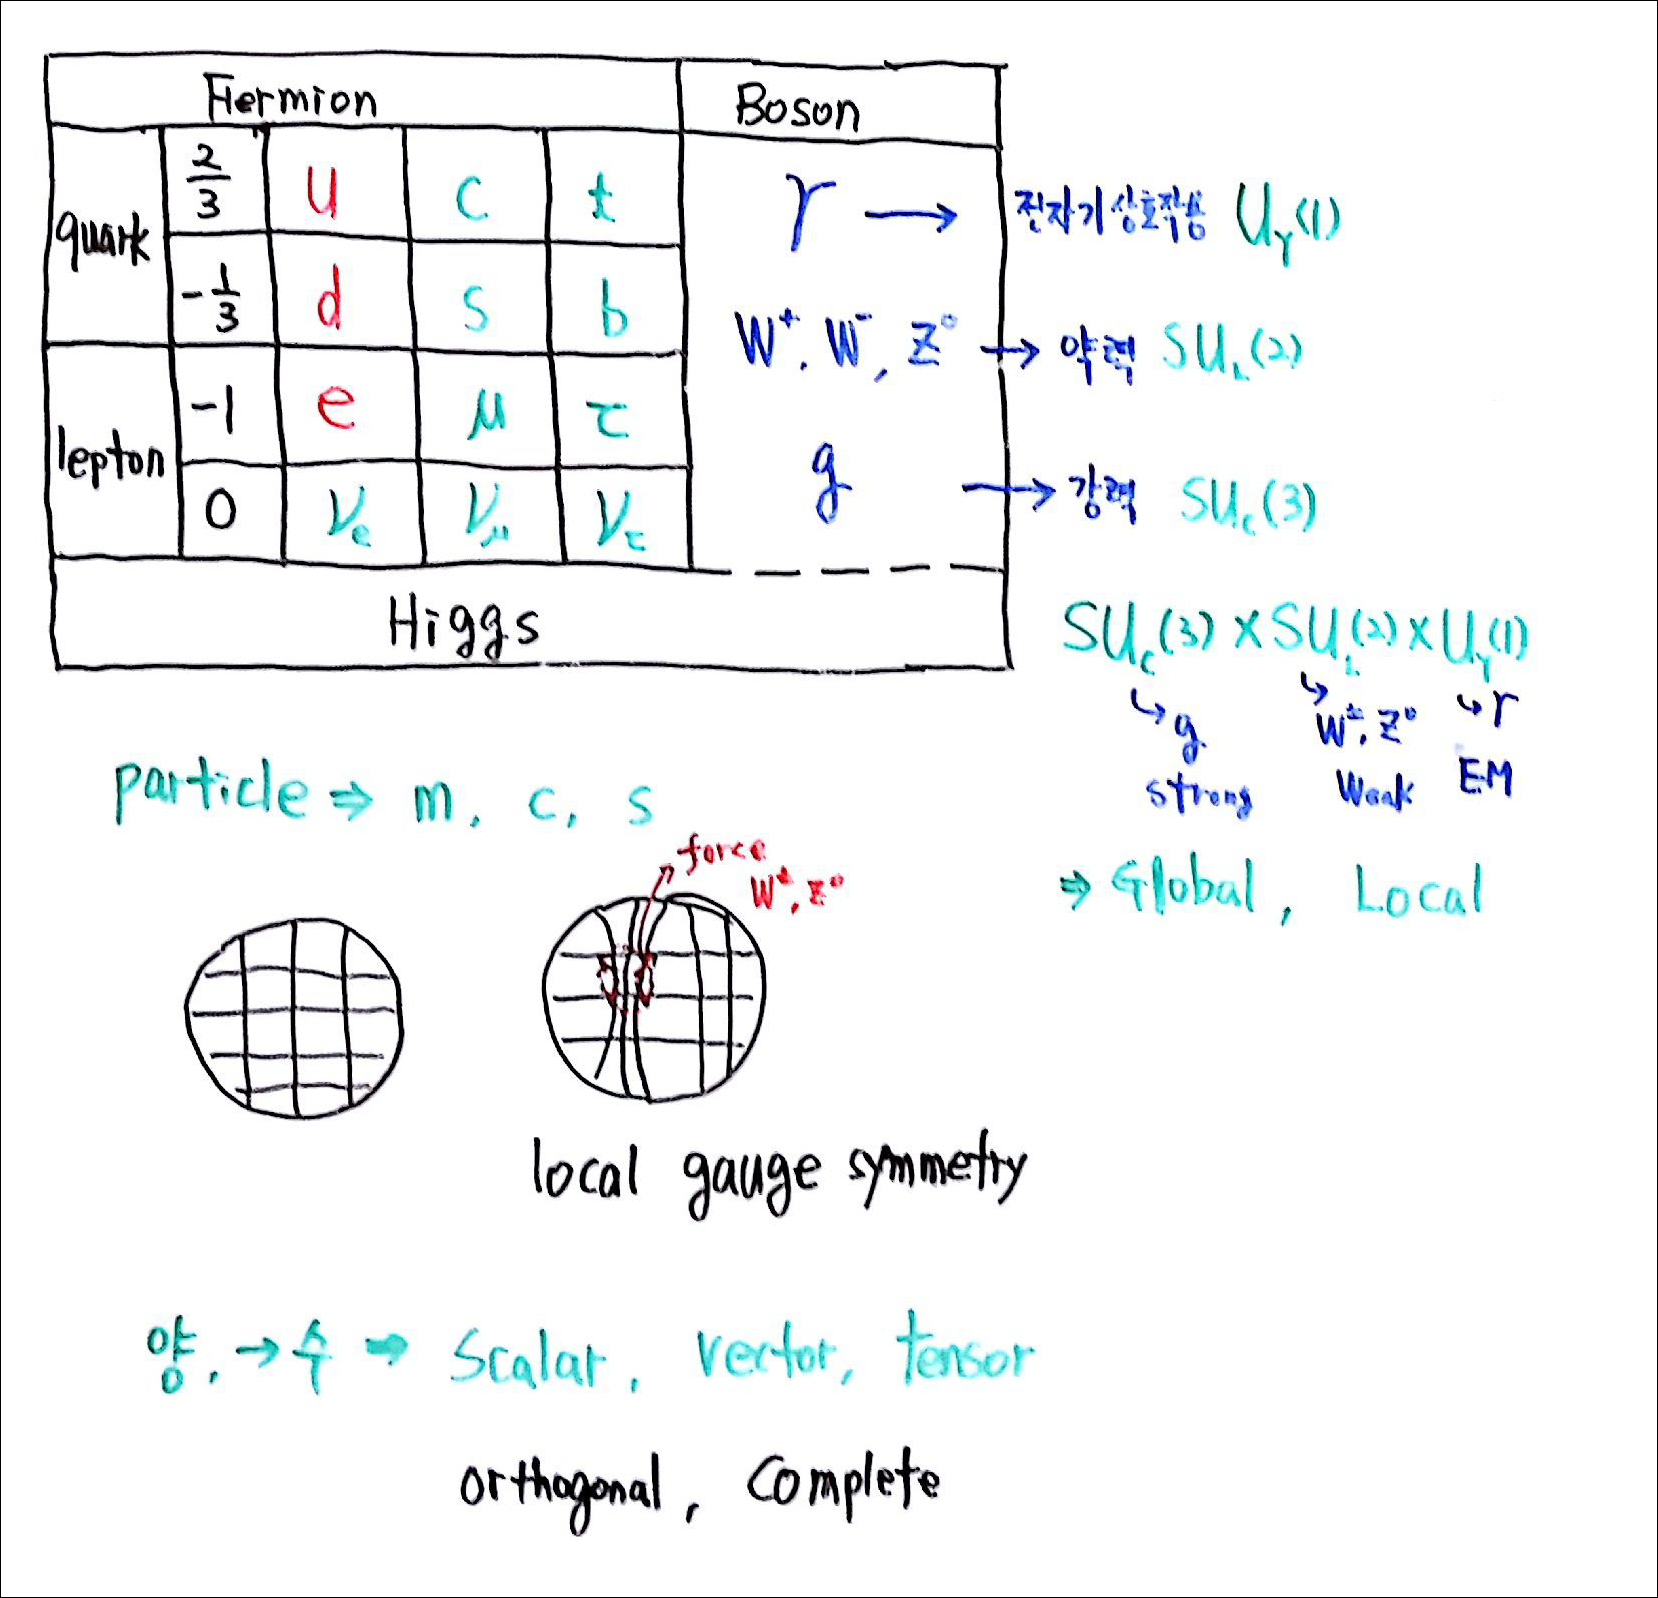 Fermion Boson
quark 2/3 u c t γ → 전자기상호작용 U_Y(1)
-1/3 d s b W⁺, W⁻, Z⁰ → 약력 SU_L(2)
lepton -1 e μ τ g → 강력 SU_C(3)
0 ν_e ν_μ ν_τ
Higgs
SU_C(3) × SU_L(2) × U_Y(1)
↳ g ↳ W±, Z⁰ ↳ γ
strong Weak EM
⇒ Global, Local
particle ⇒ m, c, s
force
W±, Z⁰
local gauge symmetry
양, → 수 ⇒ Scalar, vector, tensor
orthogonal, Complete